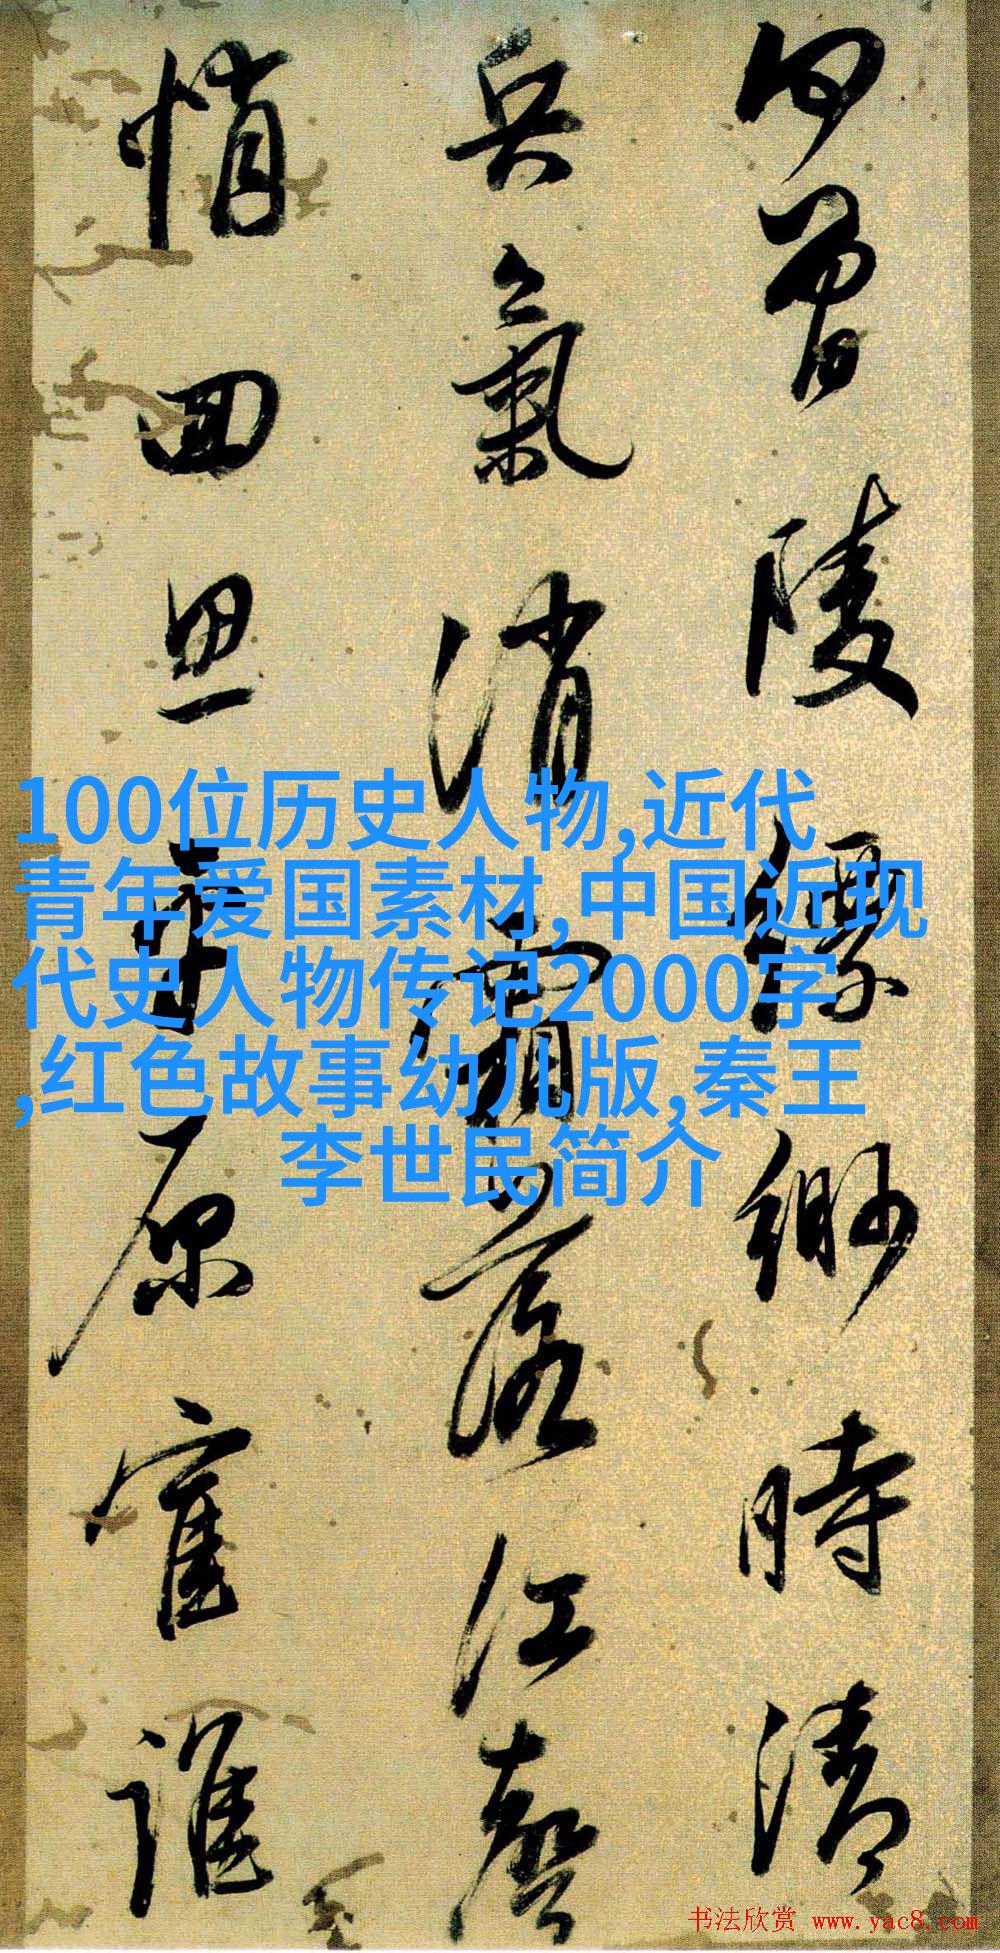 何曾陵縹緲時清
兵氣消霜落江聲
悄回平原誰
100位历史人物,近代
青年爱国素材,中国近现
代史人物传记2000字
,红色故事幼儿版,秦王
李世民简介
书法欣赏 www.yac8.com